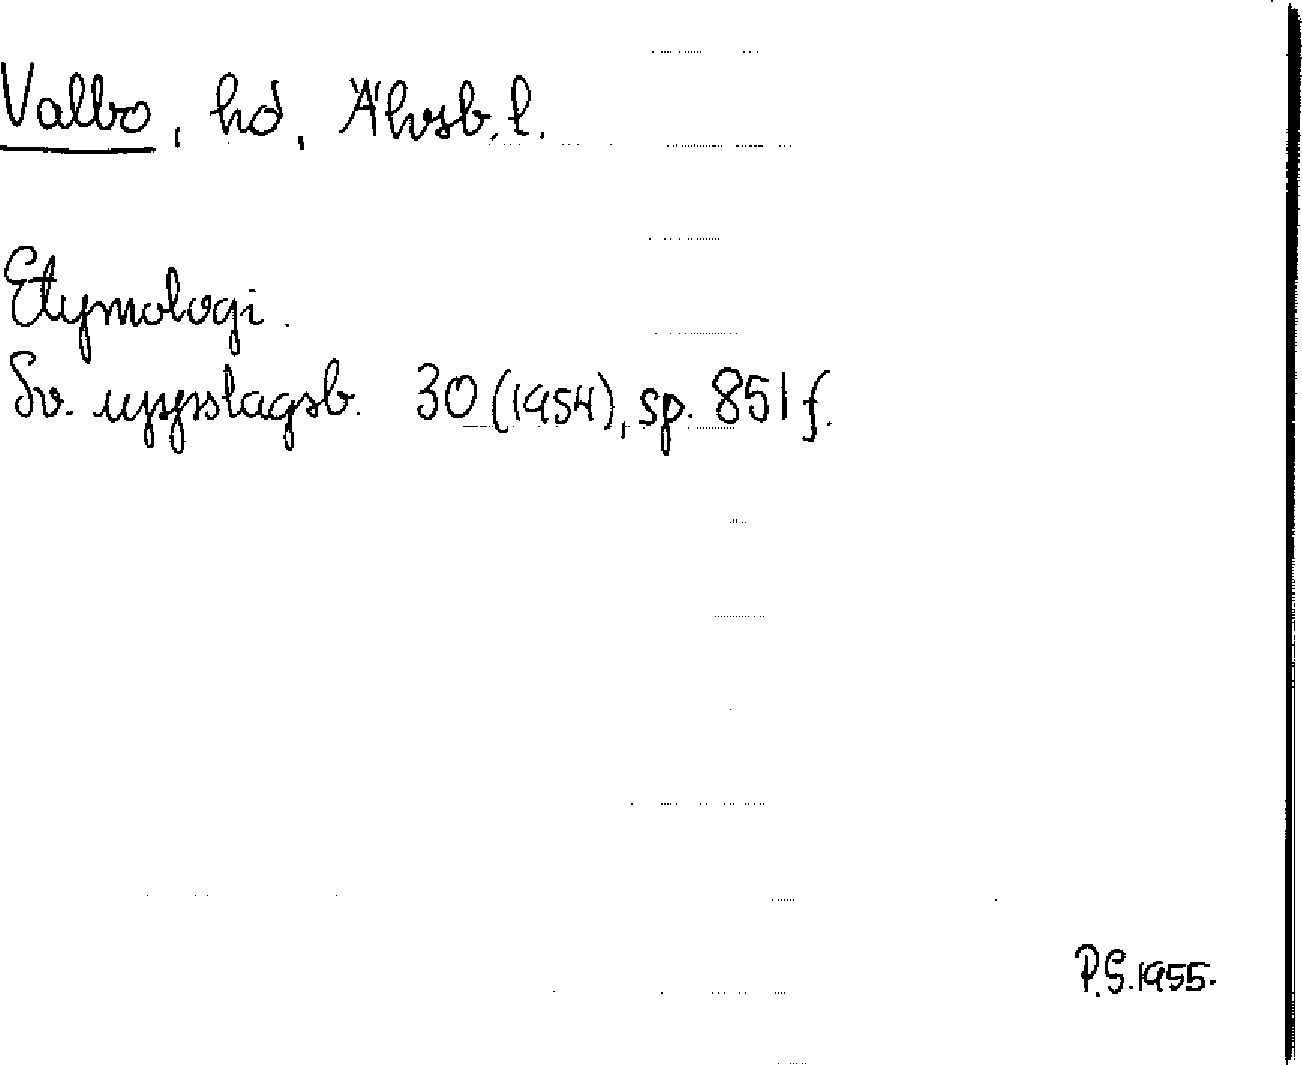 Valbo, hd, Älvsb. l.
Etymologi.
Sv. uppslagsb. 30 (1954), sp. 851 f.
P.G. 1955.